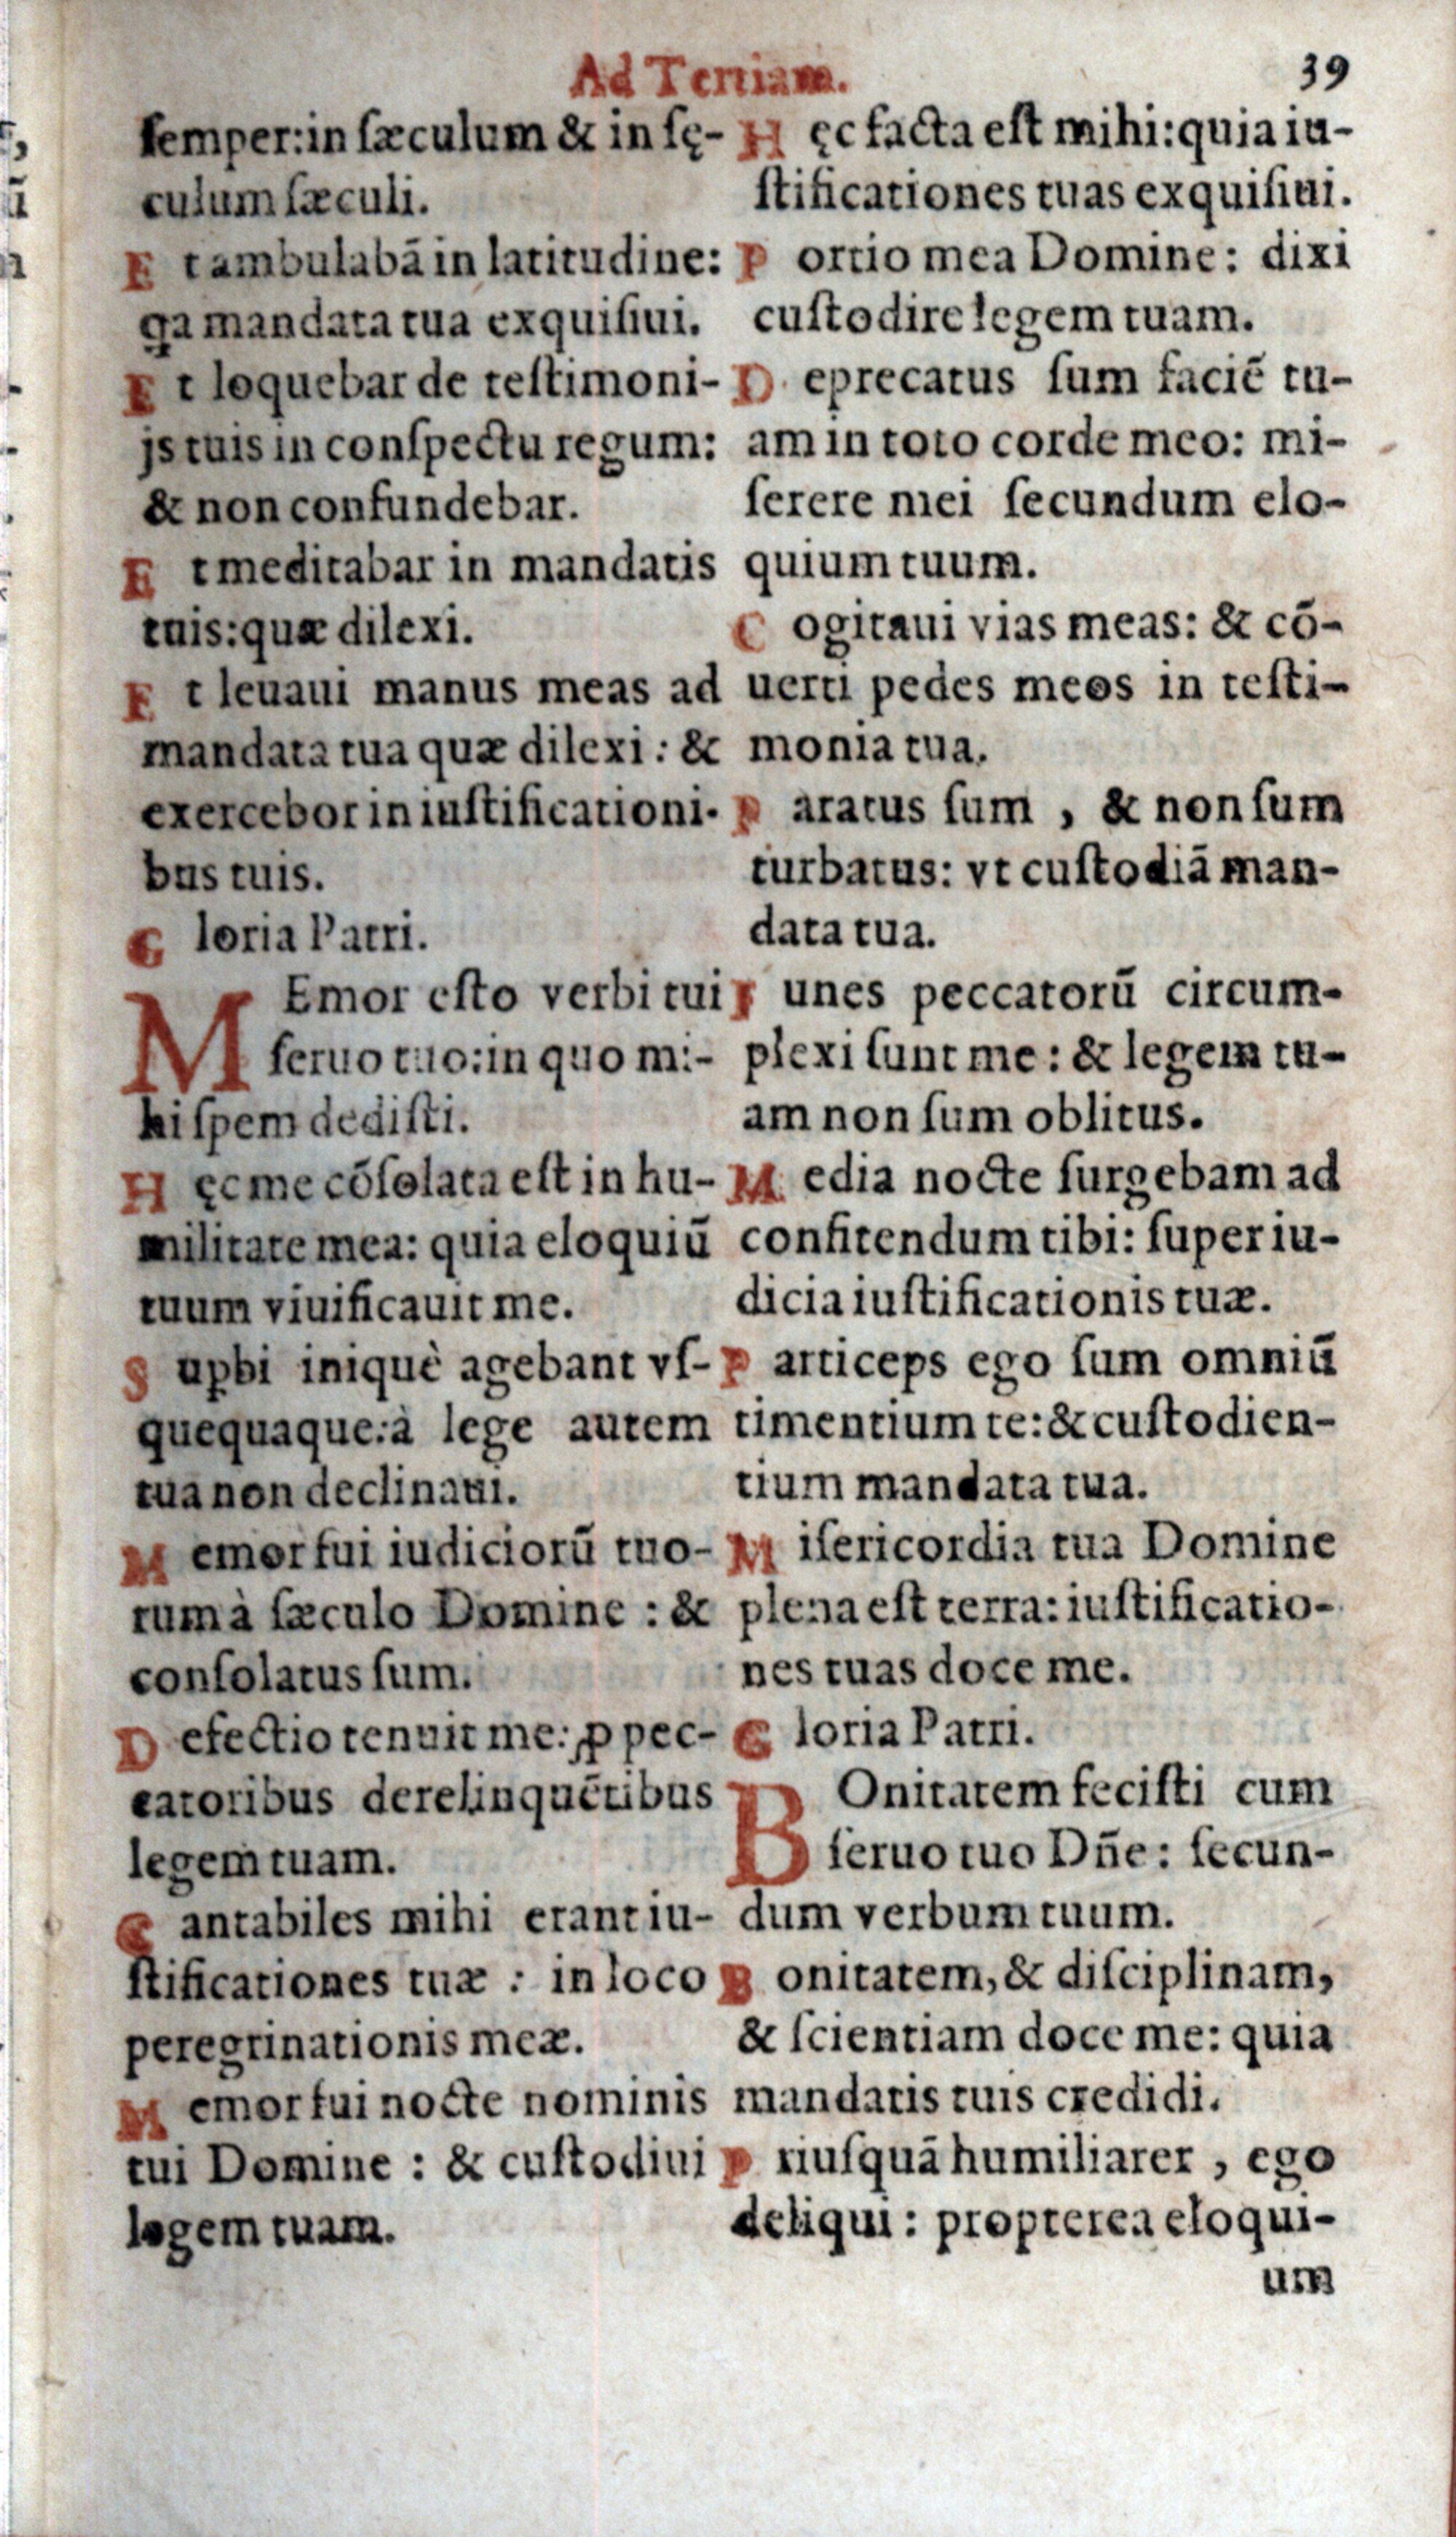 Ad Tertiam.
39
ſemper:in ſæculum & in ſę-
culum ſæculi.
E t ambulabā in latitudine:
qa mandata tua exquiſiui.
E t loquebar de teſtimoni-
js tuis in conſpectu regum:
& non confundebar.
E t meditabar in mandatis
tuis:quæ dilexi.
E t leuaui manus meas ad
mandata tua quæ dilexi: &
exercebor in iuſtificationi-
bus tuis.
G loria Patri.
MEmor eſto verbi tui
ſeruo tuo:in quo mi-
hi ſpem dediſti.
H ęc me cōſolata eſt in hu-
militate mea: quia eloquiū
tuum viuificauit me.
S uꝑbi iniquè agebant vſ-
quequaque:à lege autem
tua non declinaui.
M emor fui iudiciorū tuo-
rum à ſæculo Domine : &
conſolatus ſum.
D efectio tenuit me: ꝓ pec-
catoribus derelinquētibus
legem tuam.
C antabiles mihi erant iu-
ſtificationes tuæ : in loco
peregrinationis meæ.
M emor fui nocte nominis
tui Domine : & cuſtodiui
legem tuam.
H ęc facta eſt mihi:quia iu-
ſtificationes tuas exquiſiui.
P ortio mea Domine: dixi
cuſtodire legem tuam.
D eprecatus ſum faciē tu-
am in toto corde meo: mi-
ſerere mei ſecundum elo-
quium tuum.
C ogitaui vias meas: & cō-
uerti pedes meos in teſti-
monia tua.
P aratus ſum , & non ſum
turbatus: vt cuſtodiā man-
data tua.
F unes peccatorū circum-
plexi ſunt me: & legem tu-
am non ſum oblitus.
M edia nocte ſurgebam ad
confitendum tibi: ſuper iu-
dicia iuſtificationis tuæ.
P articeps ego ſum omniū
timentium te:& cuſtodien-
tium mandata tua.
M iſericordia tua Domine
plena eſt terra: iuſtificatio-
nes tuas doce me.
G loria Patri.
BOnitatem feciſti cum
ſeruo tuo Dñe: ſecun-
dum verbum tuum.
B onitatem, & diſciplinam,
& ſcientiam doce me: quia
mandatis tuis credidi.
P riuſquā humiliarer , ego
deliqui: propterea eloqui-
um